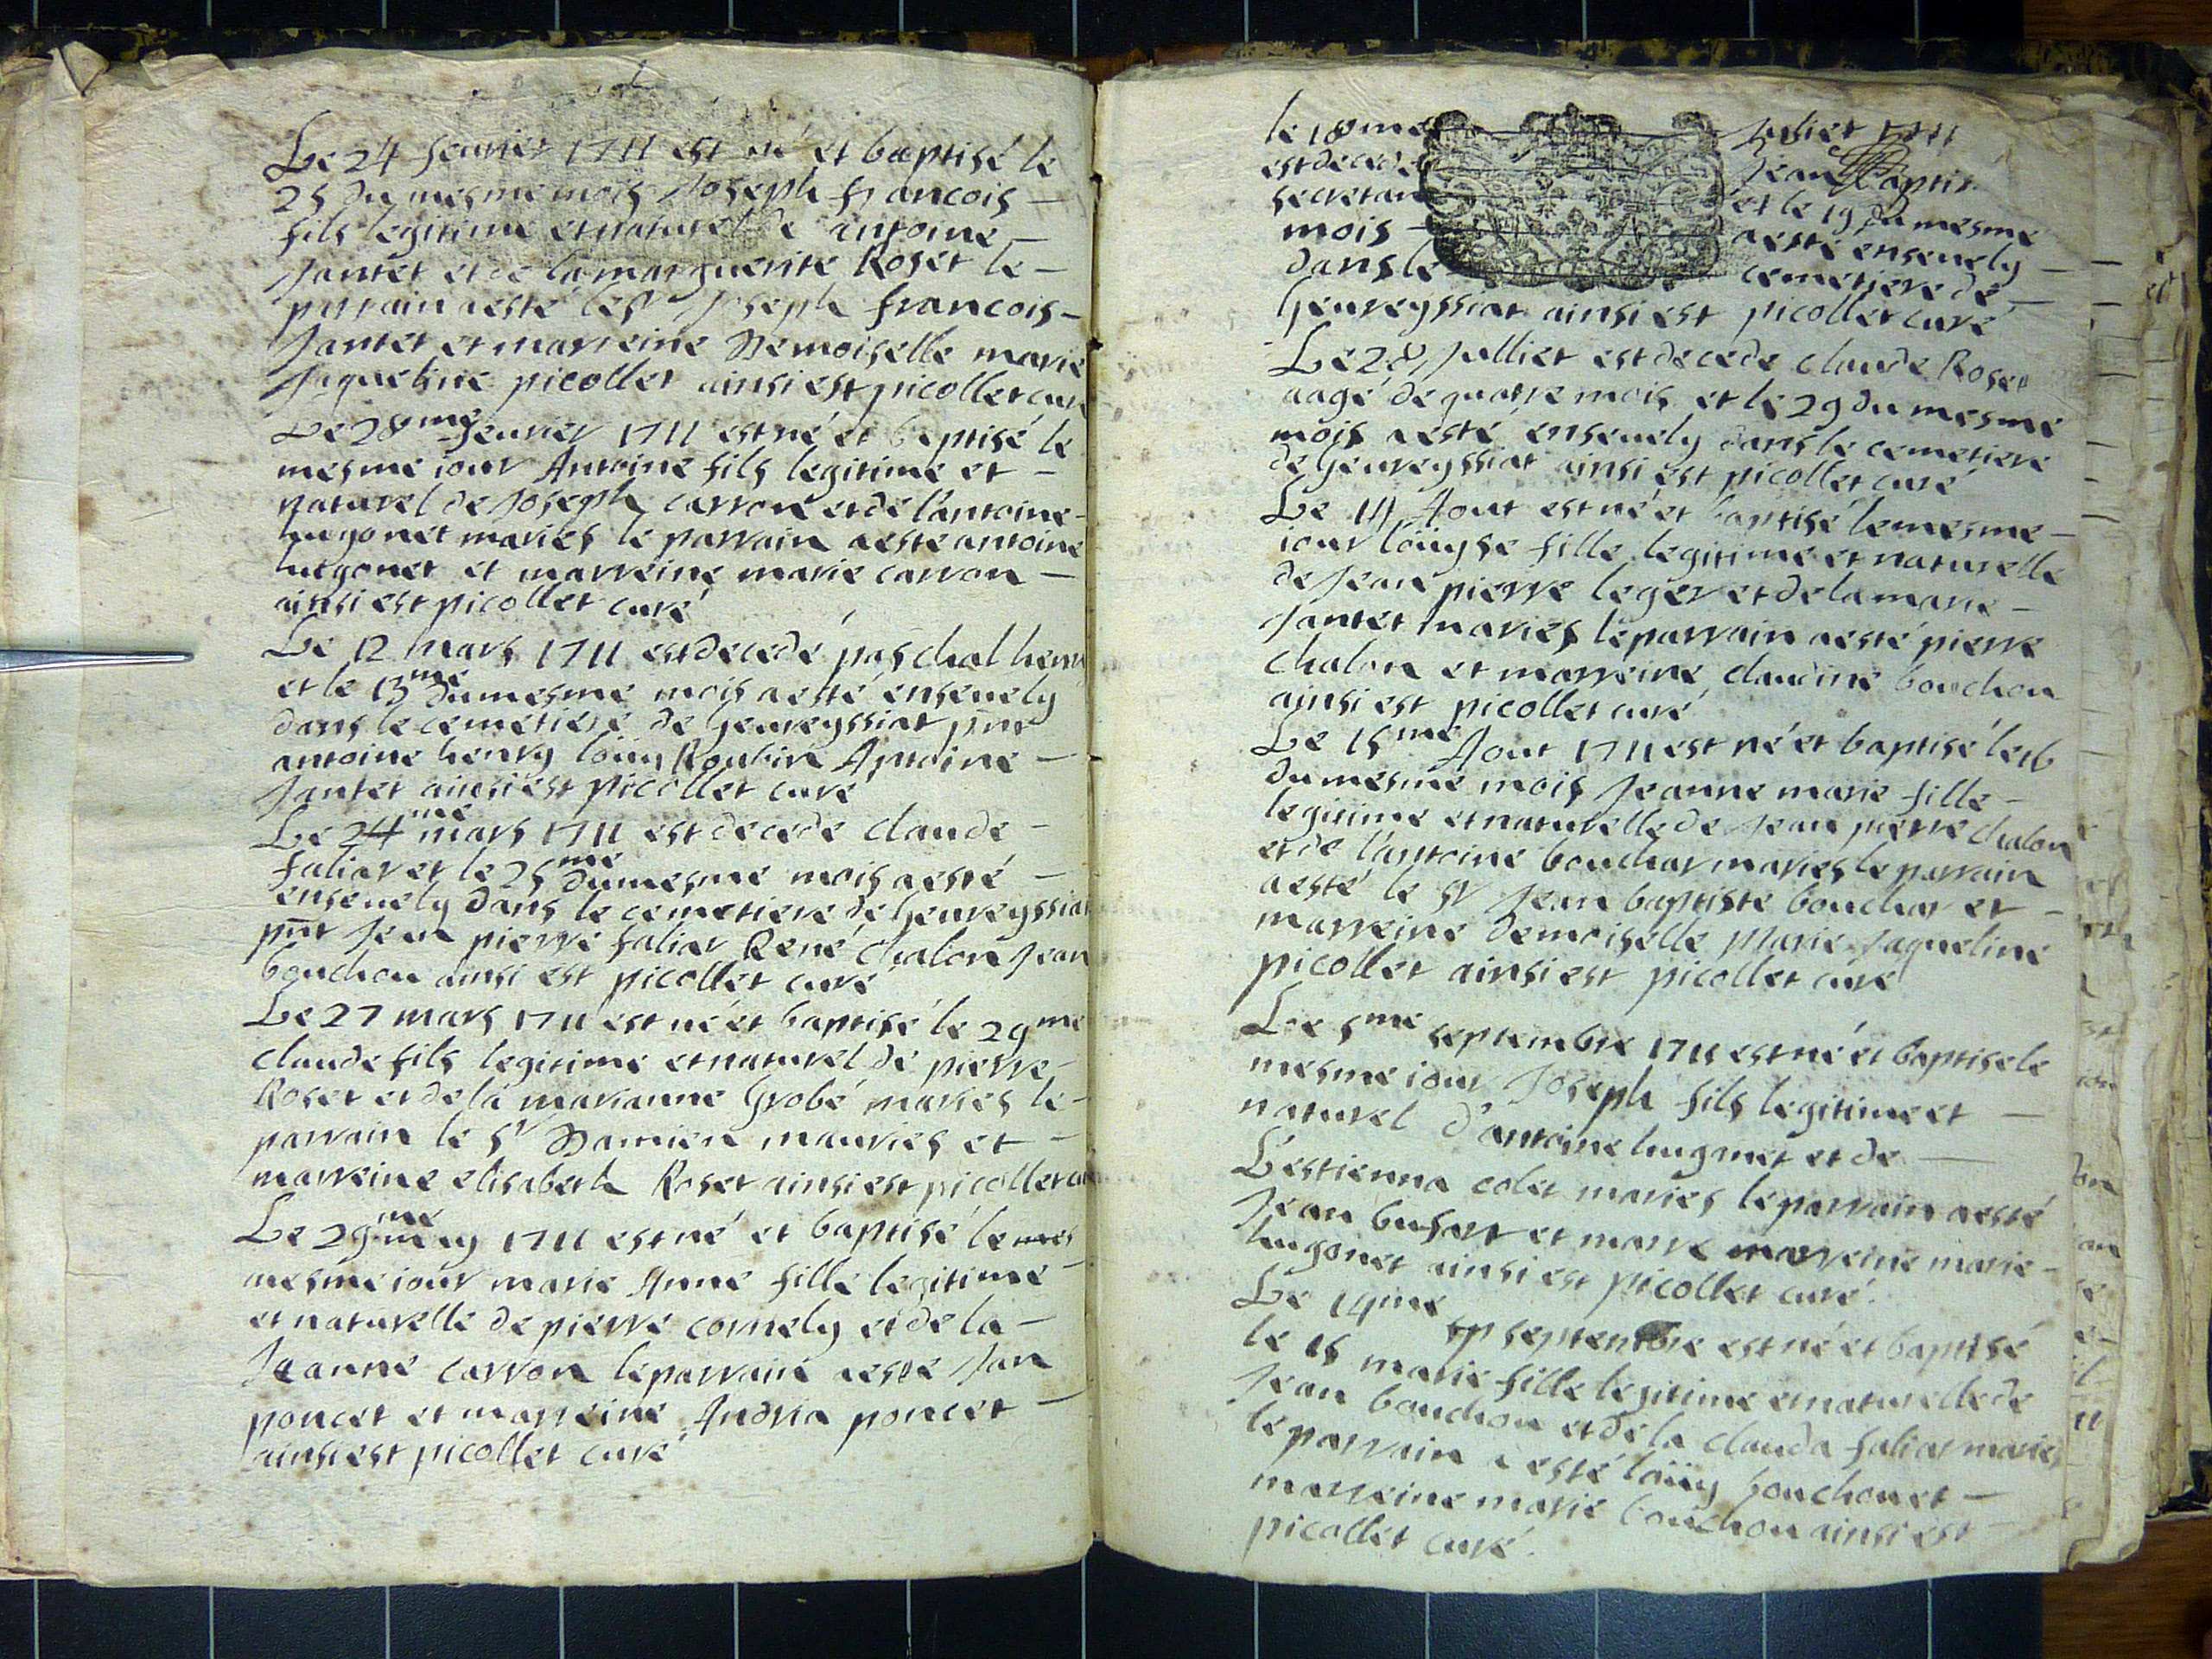 Le 24 feurier 1711 est né et baptisé le
25 du mesme mois Joseph francois
fils legitime et naturel de antoine
Jantet et de la marguerite Roset le
parrain aesté le sr Joseph francois
Jantet et marreine Demoiselle marie
Jaqueline picollet ainsi est picollet curé
Le 28me feurier 1711 est né et baptisé le
mesme iour Antoine fils legitime et
naturel de Joseph carron et de l'antoine
hugonet mariés le parrain aesté antoine
hugonet et marreine marie carron
ainsi est picollet curé
Le 12 mars 1711 est decedé paschal henry
et le 13me du mesme mois aesté enseuely
dans le cemetiere de geureyssiat pnt
antoine henry loüy Roubin Antoine
Jantet ainsi est picollet curé
Le 24me mars 1711 est decede claude
faliar et le 25me du mesme mois aesté
enseuely dans le cemetiere de Geureyssiat
pnt Jean pierre faliar René chalon Jean
bouchon ainsi est picollet curé
Le 27 mars 1711 est né et baptisé le 29me
claude fils legitime et naturel de pierre
Roset et de la marianne Grobé mariés le
parrain le sr Damien mauries et
marreine elisabeth Roset ainsi est picollet cu
Le 29me may 1711 est né et baptisé le mes
mesme iour marie Anne fille legitime
et naturelle de pierre cornely et de la
Jeanne carron le parrain aesté Jan
poncet et marreine Andria poncet
ainsi est picollet curé
le 18me Juliet 1711
est decede Jean Baptis
secretan et le 19 du mesme
mois aesté enseuely
dans le cemetiere de
Geureyssiat ainsi est picollet curé
Le 28 Julliet est decede claude Roset
aagé de quatre mois et le 29 du mesme
mois aesté enseuely dans le cemetiere
de Geureyssiat ainsi est picollet curé
Le 14 Aout est né et baptisé le mesme
iour loüyse fille legitime et naturelle
de Jean pierre leger et de la marie
Jantet mariés le parrain aesté pierre
chalon et marreine claudine bouchon
ainsi est picollet curé
Le 15me Aout 1711 est né et baptisé le 16
du mesme mois Jeanne marie fille
legitime et naturelle de Jean pierre chalon
et de l'antoine bouchar mariés le parrain
aesté le sr Jean baptiste bouchar et
marreine demoiselle Marie Jaqueline
picollet ainsi est picollet curé
Le 5me septembre 1711 est né et baptise le
mesme iour Joseph fils legitime et
naturel d'antoine hugonet et de
L'estienna colet mariés le parrain aesté
Jean bufart et marre marreine marie
hugonet ainsi est picollet curé
Le 14me septembre est né et baptisé
le 15 marie fille legitime et naturelle de
Jean bouchon et de la clauda faliar mariés
le parrain aesté loüy bouchon et
marreine marie bouchon ainsi est
picollet curé